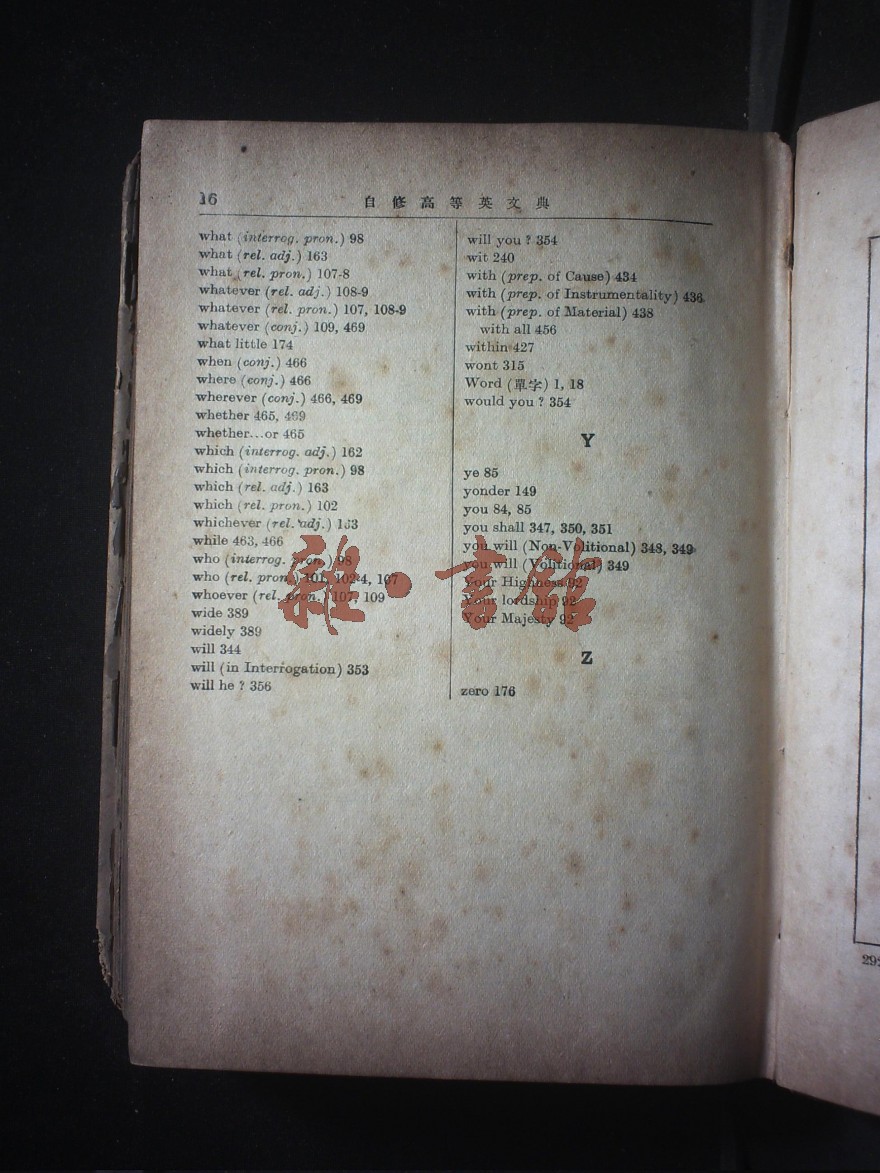 16
自修高等英文典
what (interrog. pron.) 98
what (rel. adj.) 163
what (rel. pron.) 107-8
whatever (rel. adj.) 108-9
whatever (rel. pron.) 107, 108-9
whatever (conj.) 109, 469
what little 174
when (conj.) 466
where (conj.) 466
wherever (conj.) 466, 469
whether 465, 469
whether...or 465
which (interrog. adj.) 162
which (interrog. pron.) 98
which (rel. adj.) 163
which (rel. pron.) 102
whichever (rel. adj.) 163
while 463, 466
who (interrog. pron.) 98
who (rel. pron.) 101, 102-4, 107
whoever (rel. pron.) 107, 109
wide 389
widely 389
will 344
will (in Interrogation) 353
will he ? 356
will you ? 354
wit 240
with (prep. of Cause) 434
with (prep. of Instrumentality) 436
with (prep. of Material) 438
with all 456
within 427
wont 315
Word (單字) 1, 18
would you ? 354
Y
ye 85
yonder 149
you 84, 85
you shall 347, 350, 351
you will (Non-Volitional) 348, 349
you will (Volitional) 349
Your Highness 92
Your lordship 92
Your Majesty 92
Z
zero 176
雜·書館